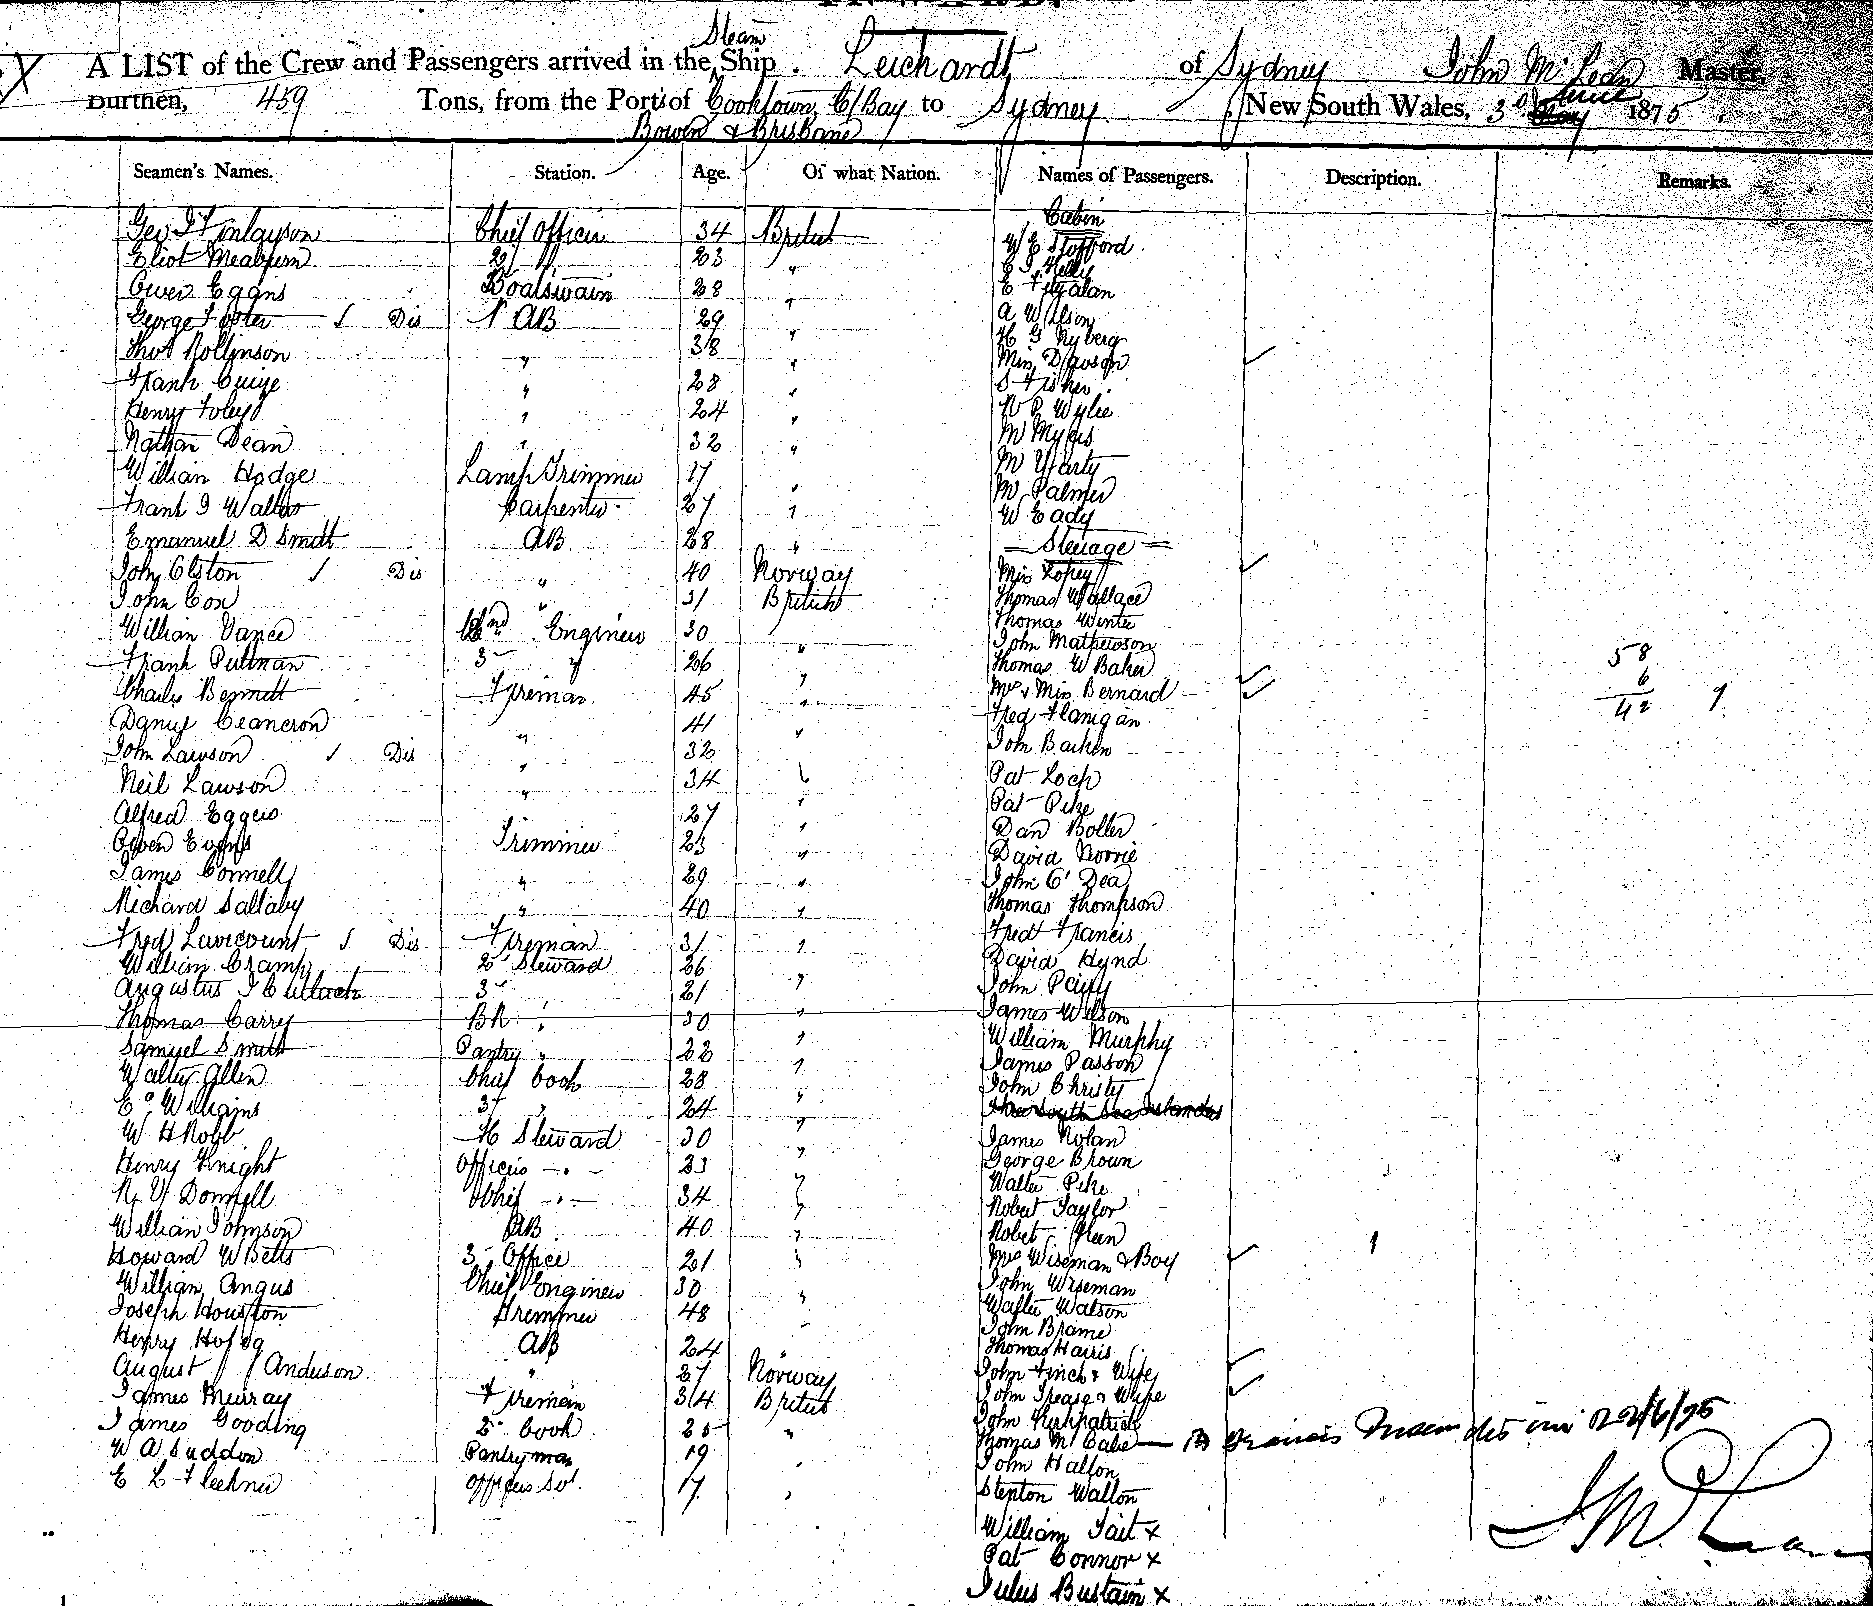 Steam
A LIST of the Crew and Passengers arrived in the Ship Leichardt of Sydney John McLean Master,
Burthen, 459 Tons, from the Port's of Cooktown, C/Bay to Sydney New South Wales, 3d June 1875
Bowen & Brisbane
Seamen's Names. Station. Age. Of what Nation. Names of Passengers. Description. Remarks.
Cabin
Geo Finlayson Chief Officer 34 British W E Stofford
Eliot Meaburn 2 " 23 " Kelly
Owen Eggns Boatswain 28 " E Fitzalan
George Foster / Dis AB 29 " A Wilson
H G Nyberg
Thos Rollinson " 38 " Miss Dawson
Frank " 28 " S Fisher
Henry Foley " 24 " W P Wylie
Nathan Dean " 32 " M Myers
William Hodge Lamp Trimmer 17 " M Yarty
M Palmer
Frank J Walter Carpenter 27 " W Eady
Emanuel D Smidt AB 28 " Steerage
John Olston / Dis " 40 Norway Mrs
John Cox " 31 British Thomas Wallace
Thomas Winter
William Vance 2nd Engineer 30 " John Mathewson
Frank Putman 3 " 26 " Thomas W Baker 58
Charles Bennett Fireman 45 " Mrs & Miss Bernard 6
42 9
Daniel Cameron " 41 " Fred Flanigan
John Lawson / Dis " 32 John Barken
Neil Lawson " 34 " Pat Loch
Pat Pike
Alfred Eggers 27 " Dan Boller
Owen Evans Trimmer 23 " David Norrie
James Connell " 29 " John O'Dea
Richard Sallaby " 40 " Thomas Thompson
Fred Lavicount / Dis Fireman 31 " Fredk Francis
William Cramp 2 Steward 26 " David Hynd
Augustus J Cullach 3 21 " John Perry
Thomas Carrey BR " 30 " James Wilson
Samuel Smith Pantry " 22 " William Murphy
James Passon
Walter Allen Chief Cook 28 " John Christy
E Williams 3 " 24 " South Sea Islander
W H Robb H Steward 30 " James Nolan
Henry Knight Officers " 23 George Brown
Walter Pike
R Y Donnell Chief " 34 Robert Taylor
William Johnson AB 40 " Robert Glen
Howard W Betts 3 Officer 21 Mrs Wiseman & Boy 1
William Angus Chief Engineer 30 " John Wiseman
Joseph Houston Trimmer 48 Walter Watson
John Brame
Henry AB 24 " Thomas Harris
August Anderson " 27 Norway John Finch & Wife
James Murray Fireman 34 British John Trease & Wife
James Gooding 2 Cook 25 " John Kirkpatrick
W A Suddon Pantryman 19 Thomas McCabe — 22/6/75
John Halton
E L Fleehner Officers Sv. 17 " Stepton Walton
William Tait x
J McLean
Pat Connor x
Julus Bustain x